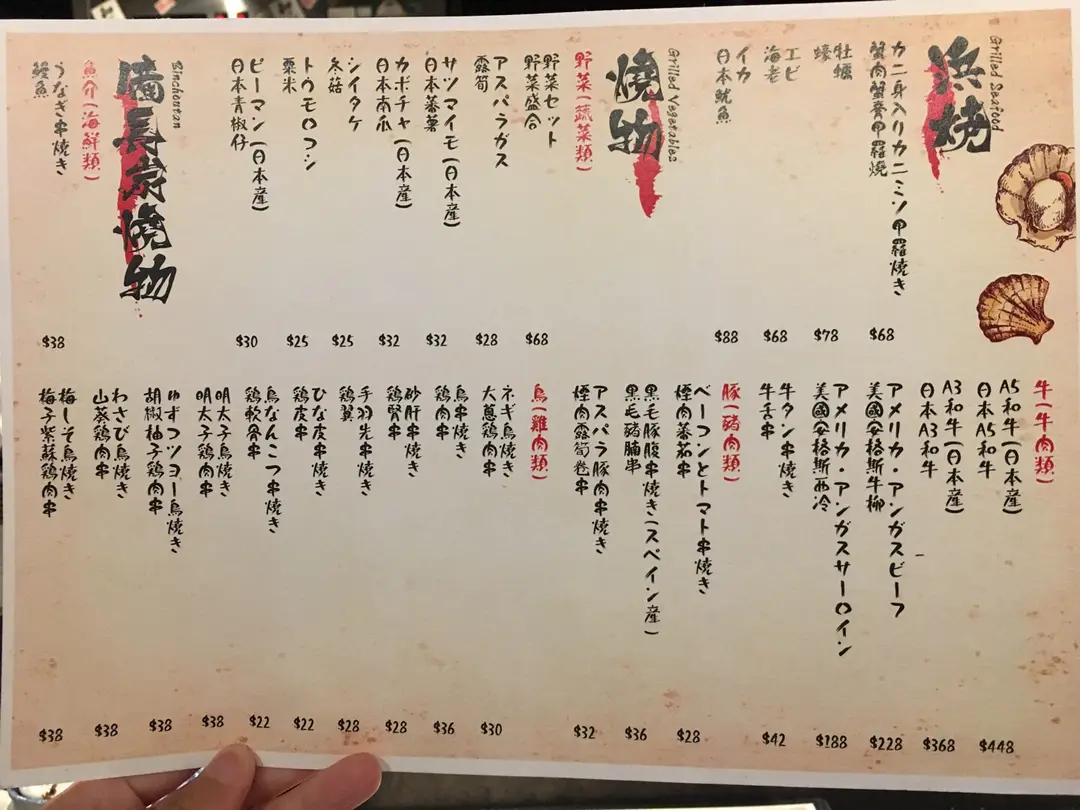 浜焼
Grilled Seafood
カニ身入りカニミソ甲羅焼き
蟹肉蟹膏甲羅燒
$68
牡蠣
蠔
$78
エビ
海老
$68
イカ
日本魷魚
$88
燒物
Grilled Vegetables
野菜(蔬菜類)
野菜セット
野菜盛合
$68
アスパラガス
露筍
$28
サツマイモ(日本産)
日本蕃薯
$32
カボチャ(日本産)
日本南瓜
$32
シイタケ
冬菇
$25
トウモロコシ
粟米
$25
ピーマン(日本産)
日本青椒仔
$30
備長炭燒物
Binchoutan
魚介(海鮮類)
うなぎ串焼き
鰻魚
$38
牛(牛肉類)
A5和牛(日本産)
日本A5和牛
$448
A3和牛(日本産)
日本A3和牛
$368
アメリカ・アンガスビーフ
美國安格斯牛柳
$228
アメリカ・アンガスサーロイン
美國安格斯西冷
$188
牛タン串焼き
牛舌串
$42
豚(豬肉類)
ベーコンとトマト串焼き
煙肉蕃茄串
$28
黒毛豚腹串焼き(スペイン産)
黑毛豬腩串
$36
アスパラ豚肉串焼き
煙肉露筍卷串
$32
鳥(雞肉類)
ネギ鳥焼き
大蔥鶏肉串
$30
鳥串焼き
鶏肉串
$36
砂肝串焼き
鶏腎串
$28
手羽先串焼き
鶏翼
$28
ひな皮串焼き
鶏皮串
$22
鳥なんこつ串焼き
鶏軟骨串
$22
明太子鳥焼き
明太子鶏肉串
$38
ゆずコツョー鳥焼き
胡椒柚子鶏肉串
$38
わさび鳥焼き
山葵鶏肉串
$38
梅しそ鳥焼き
梅子紫蘇鶏肉串
$38